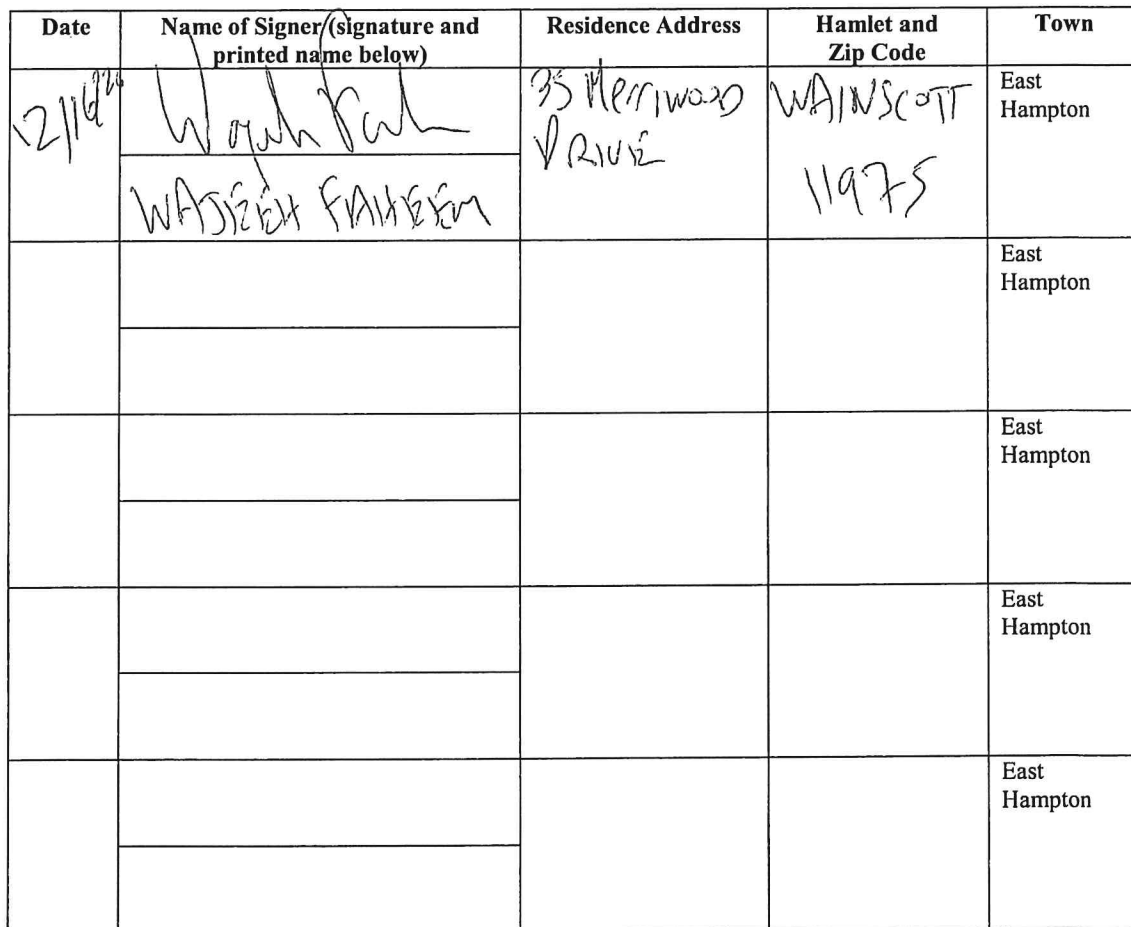 Date
Name of Signer (signature and
printed name below)
Residence Address
Hamlet and
Zip Code
Town
12/16/20
35 Merriwood
DRIVE
WAINSCOTT
11975
East
Hampton
WAJEEH FAHEEM
East
Hampton
East
Hampton
East
Hampton
East
Hampton